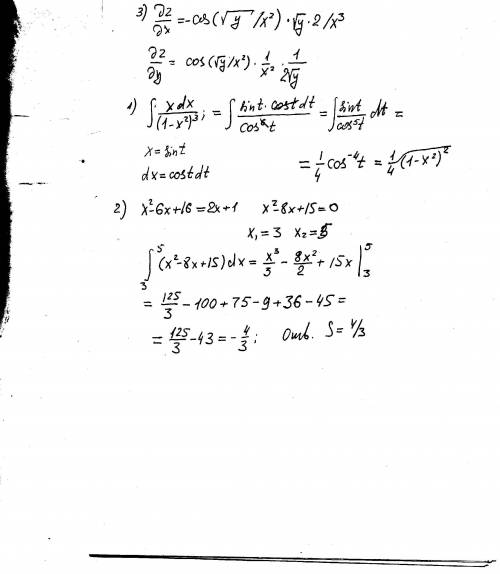 3) ∂z/∂x = -cos(√y /x²)·√y·2/x³
∂z/∂y = cos(√y/x²)·1/x²·1/2√y
1) ∫ xdx/(1-x²)³; = ∫ sint·costdt/cos⁶t = ∫ sint/cos⁵t dt =
x=sint
dx=costdt
= 1/4 cos⁻⁴t = 1/4 (1-x²)²
2) x²-6x+16=2x+1 x²-8x+15=0
x₁=3 x₂=5
∫₃⁵(x²-8x+15)dx = x³/3 - 8x²/2 + 15x |₃⁵
= 125/3 - 100+75-9+36-45=
= 125/3 - 43 = -4/3; Отв. S=4/3